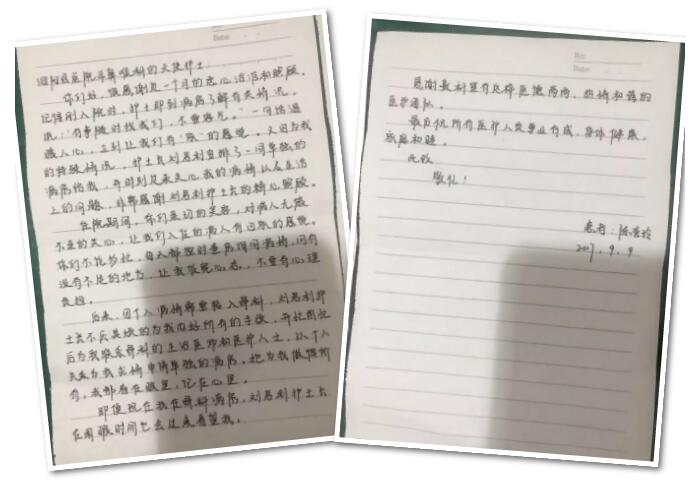 泪阳县医院耳鼻喉科的天使护士:
你们好,很感谢是一个月的悉心治疗和照顾。
记得刚入院时,护士即到病房了解有关情况,
说:"有事随时找我们,不要客气。"一句话温
暖人心,立刻让我们有"家"的感觉。又因为我
的特殊情况,护士长刘君利安排了一间单独的
病房给我,并时刻过来关心我的病情以及生活
上的问题,非常感谢刘君利护士长的精心照顾。
住院期间,你们亲切的笑容,对病人无微
不至的关心,让我们入住的病人有回家的感觉。
你们不论多忙,每天都按时查房,询问病情,问有
没有不足的地方,让我放宽心态,不要有心理
负担。
后来,因个人病情需要转入骨科,刘君利护
士长不厌其烦的为我办好所有的手续,并把
后为我联系骨科的主治医师和医护人士,以个人
关系为我求情申请单独的病房。她为我做得所
有,我都看在眼里,记在心里。
即使现在我在骨科病房,刘君利护士长
在闲暇时间也会过来看望我。
感谢贵科室有这样医德高尚,热情和蔼的
医护团队。
最后祝所有医护人员事业有成,身体健康,
家庭和睦。
此致
敬礼!
患者:陈
2017.9.9